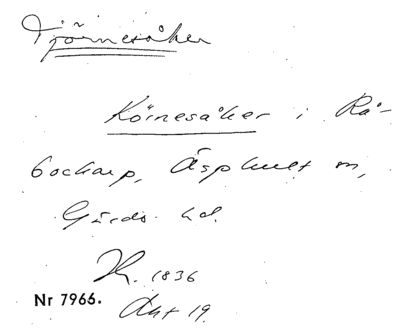 Tjörnesåker
Körnesåker i Rå-
bockarp, Äsphult sn,
Gärds hd.
1836
Nr 7966. Akt 19.